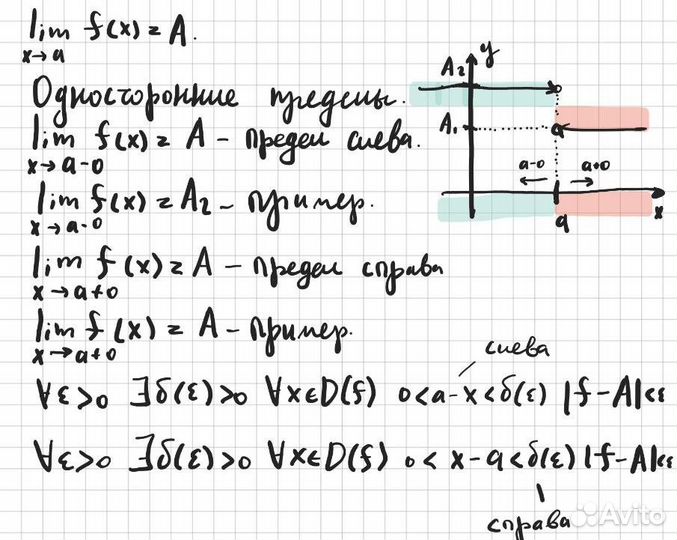 lim f(x) = A.
x→a
Односторонние пределы.
lim f(x) = A – предел слева.
x→a-0
lim f(x) = A₂ – пример.
x→a-0
lim f(x) = A – предел справа
x→a+0
lim f(x) = A – пример.
x→a+0
слева
∀ε>0 ∃δ(ε)>0 ∀x∈D(f) 0<a-x<δ(ε) |f-A|<ε
∀ε>0 ∃δ(ε)>0 ∀x∈D(f) 0<x-a<δ(ε) |f-A|<ε
справа
y
A₂
A₁
a-0 a+0
a
x
Avito